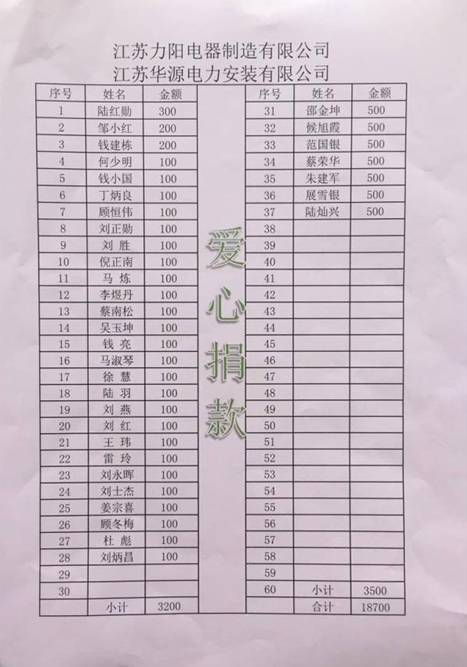 江苏力阳电器制造有限公司
江苏华源电力安装有限公司
序号 姓名 金额
1 陆红勋 300
2 邹小红 200
3 钱建栋 200
4 何少明 100
5 钱小国 100
6 丁炳良 100
7 顾恒伟 100
8 刘正勋 100
9 刘 胜 100
10 倪正南 100
11 马 炼 100
12 李煜丹 100
13 蔡南松 100
14 吴玉坤 100
15 钱 亮 100
16 马淑琴 100
17 徐 慧 100
18 陆 羽 100
19 刘 燕 100
20 刘 红 100
21 王 玮 100
22 雷 玲 100
23 刘永晖 100
24 刘士杰 100
25 姜宗喜 100
26 顾冬梅 100
27 杜 彪 100
28 刘炳昌 100
29
30
小计 3200
爱心捐款
序号 姓名 金额
31 邵金坤 500
32 候旭霞 500
33 范国银 500
34 蔡荣华 500
35 朱建军 500
36 展雪银 500
37 陆灿兴 500
38
39
40
41
42
43
44
45
46
47
48
49
50
51
52
53
54
55
56
57
58
59
60 小计 3500
合计 18700